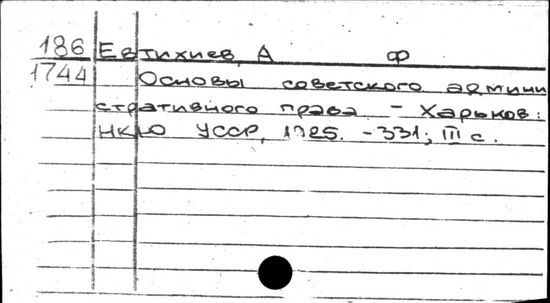 186 Евтихиев, А Ф
1744 Основы советского админи
стративного права. – Харьков:
НКЮ УССР, 1925. – 331; III с.